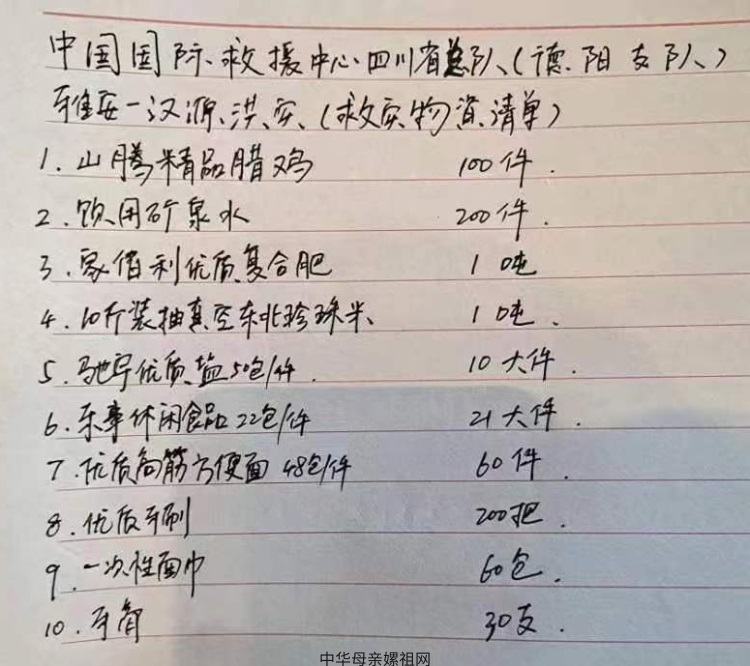 中国国际救援中心四川省总队(德阳支队)
雅安一汉源洪灾(救灾物资清单)
1.山腾精品腊鸡 100件.
2.饮用矿泉水 200件.
3.家佰利优质复合肥 1吨
4.10斤装抽真空东北珍珠米、 1吨.
5.驰宇优质盐50包/件. 10大件.
6.乐事休闲食品22包/件 21大件.
7.优质高筋方便面48包/件 60件.
8.优质牙刷 200把.
9.一次性面巾 60包.
10.牙膏 30支.
中华母亲嫘祖网